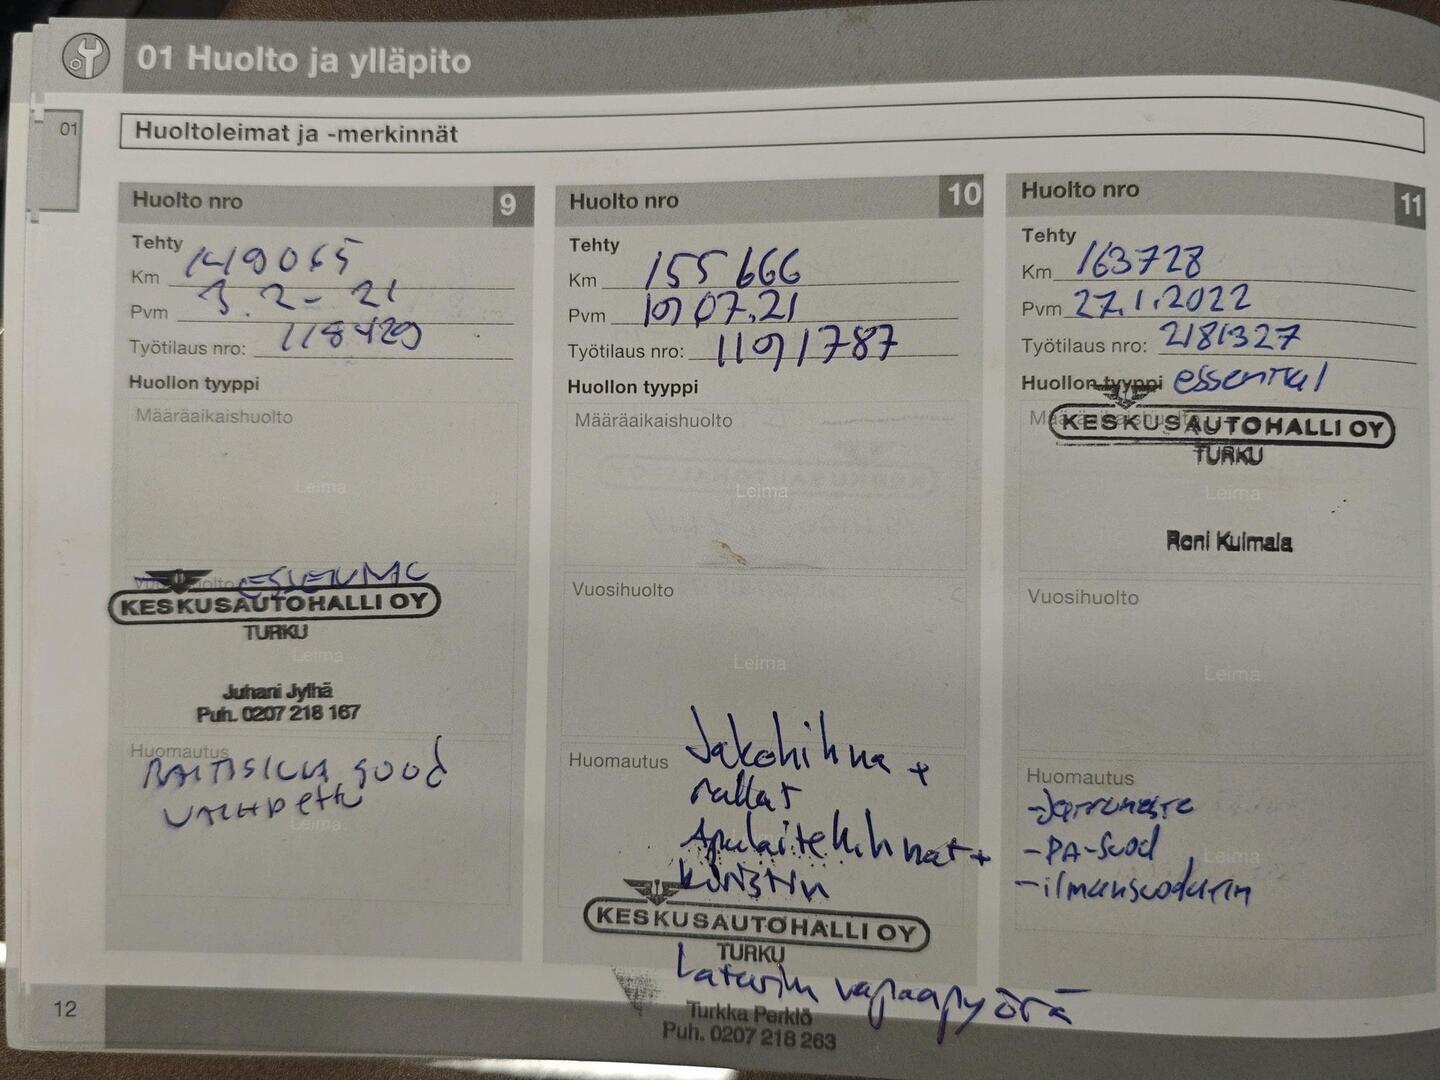 01 Huolto ja ylläpito
01
Huoltoleimat ja -merkinnät
Huolto nro 9
Tehty
Km 149065
Pvm 3.2-21
Työtilaus nro: 118429
Huollon tyyppi
Määräaikaishuolto
Leima
KESKUSAUTOHALLI OY
TURKU
Leima
Juhani Jylhä
Puh. 0207 218 167
Huomautus
RAITISILMA SUOD
VAIHDettu
Leima
Huolto nro 10
Tehty
Km 155 666
Pvm 07.21
Työtilaus nro: 1191787
Huollon tyyppi
Määräaikaishuolto
Leima
Vuosihuolto
Leima
Huomautus Jakohihna +
rullat
Apulaitehihnat +
KESKUSAUTOHALLI OY
TURKU
Laturin vapaapyörä
Turkka Perklö
Puh. 0207 218 263
Huolto nro 11
Tehty
Km 163728
Pvm 27.1.2022
Työtilaus nro: 2181327
Huollon tyyppi essential
Määräaikaishuolto
KESKUSAUTOHALLI OY
TURKU
Leima
Roni Kulmala
Vuosihuolto
Leima
Huomautus
-Jarruneste
-PA-Suod
Leima
-ilmansuodatin
12